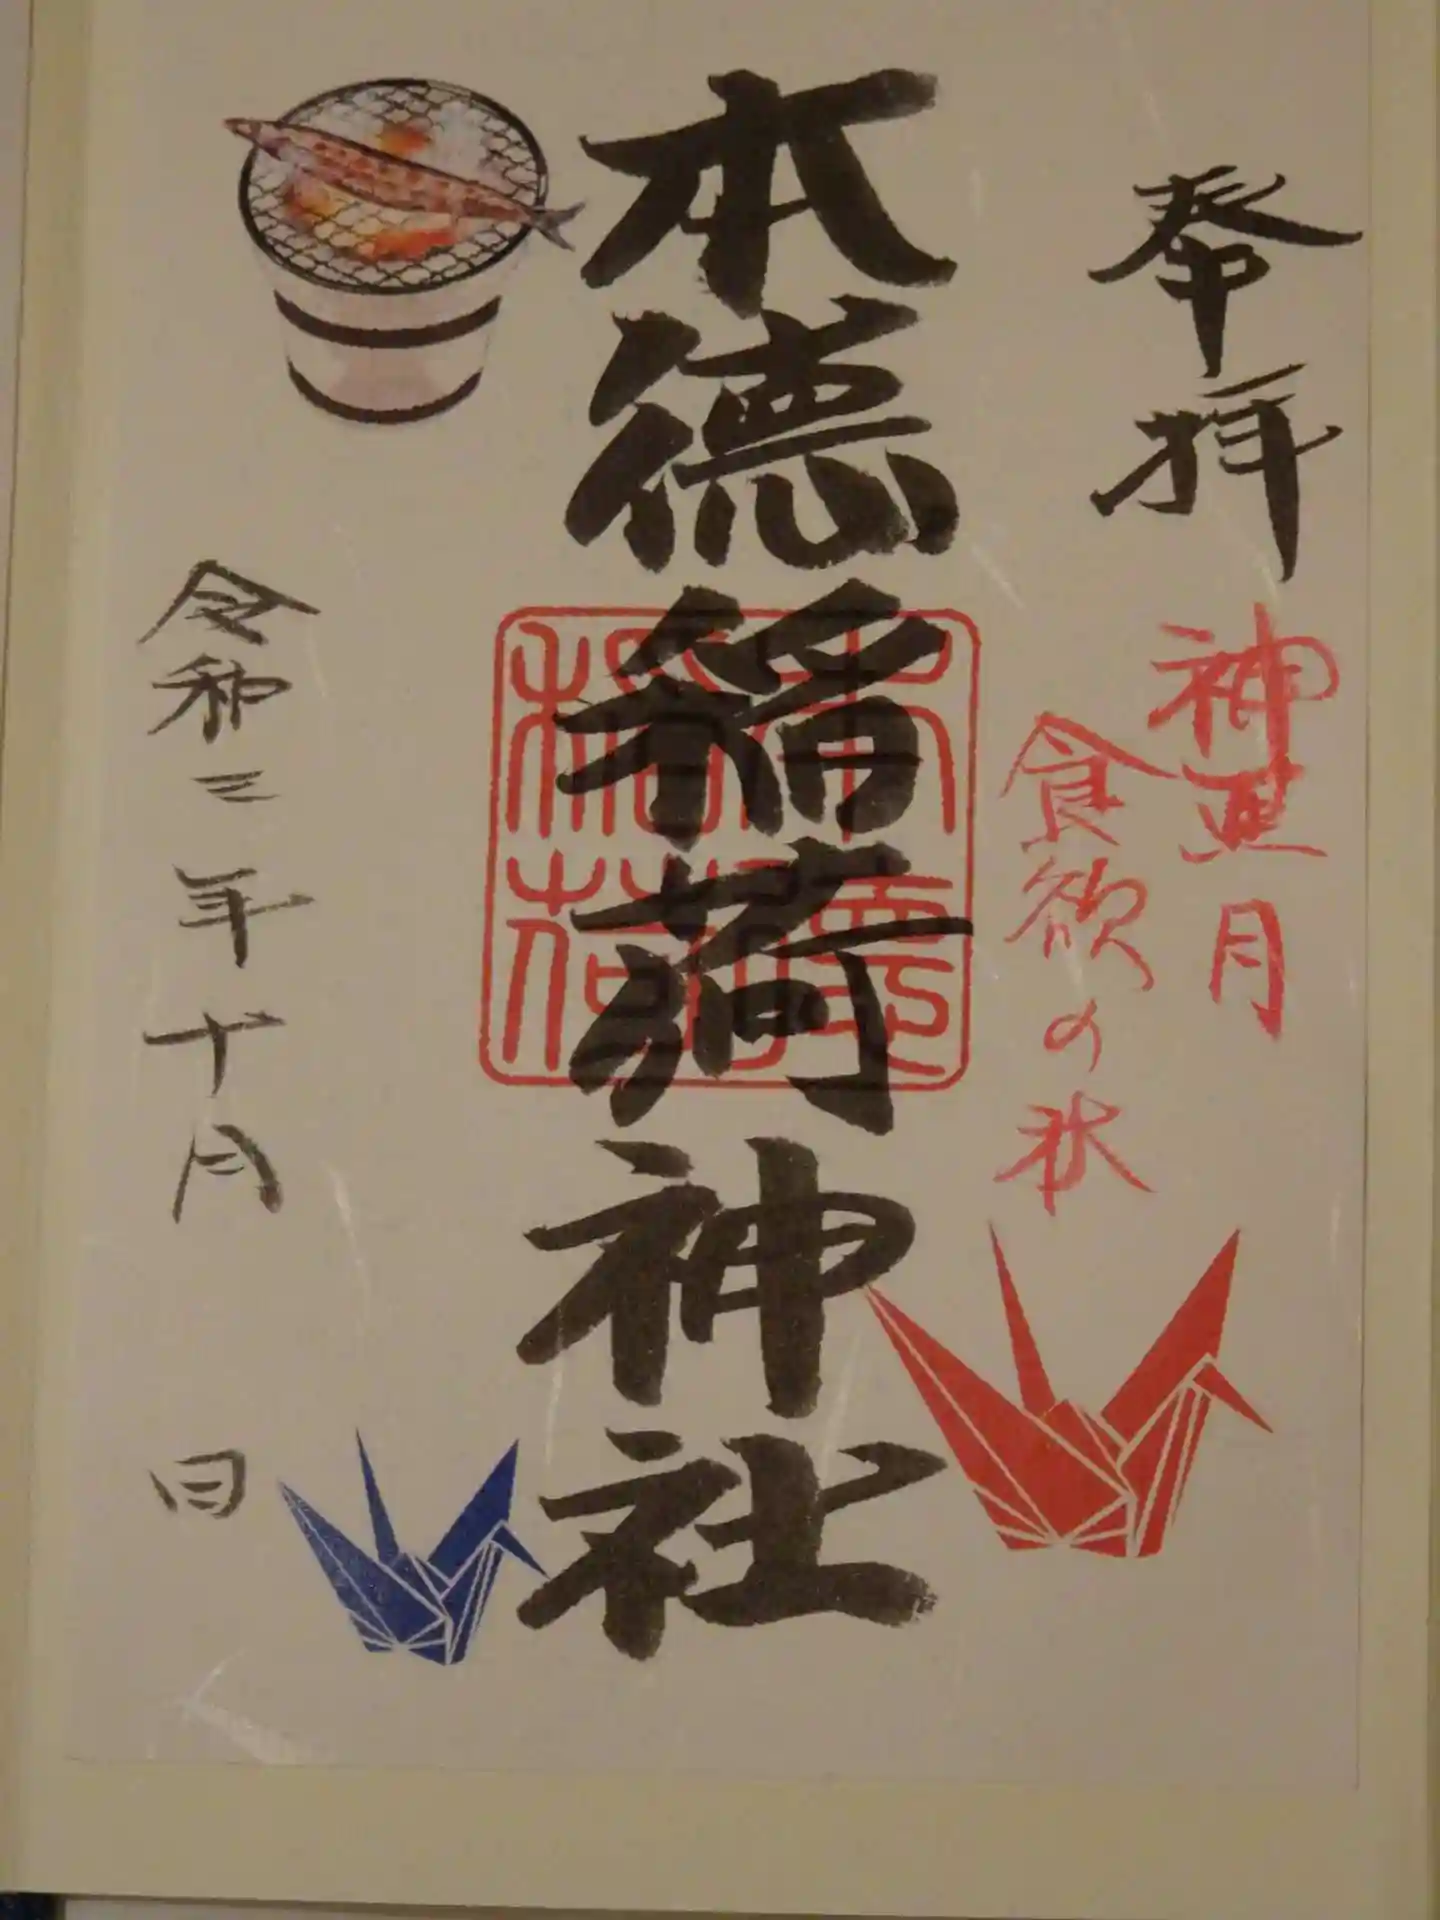 奉拝
神無月
食欲の秋
本徳稲荷神社
令和二年十月 日